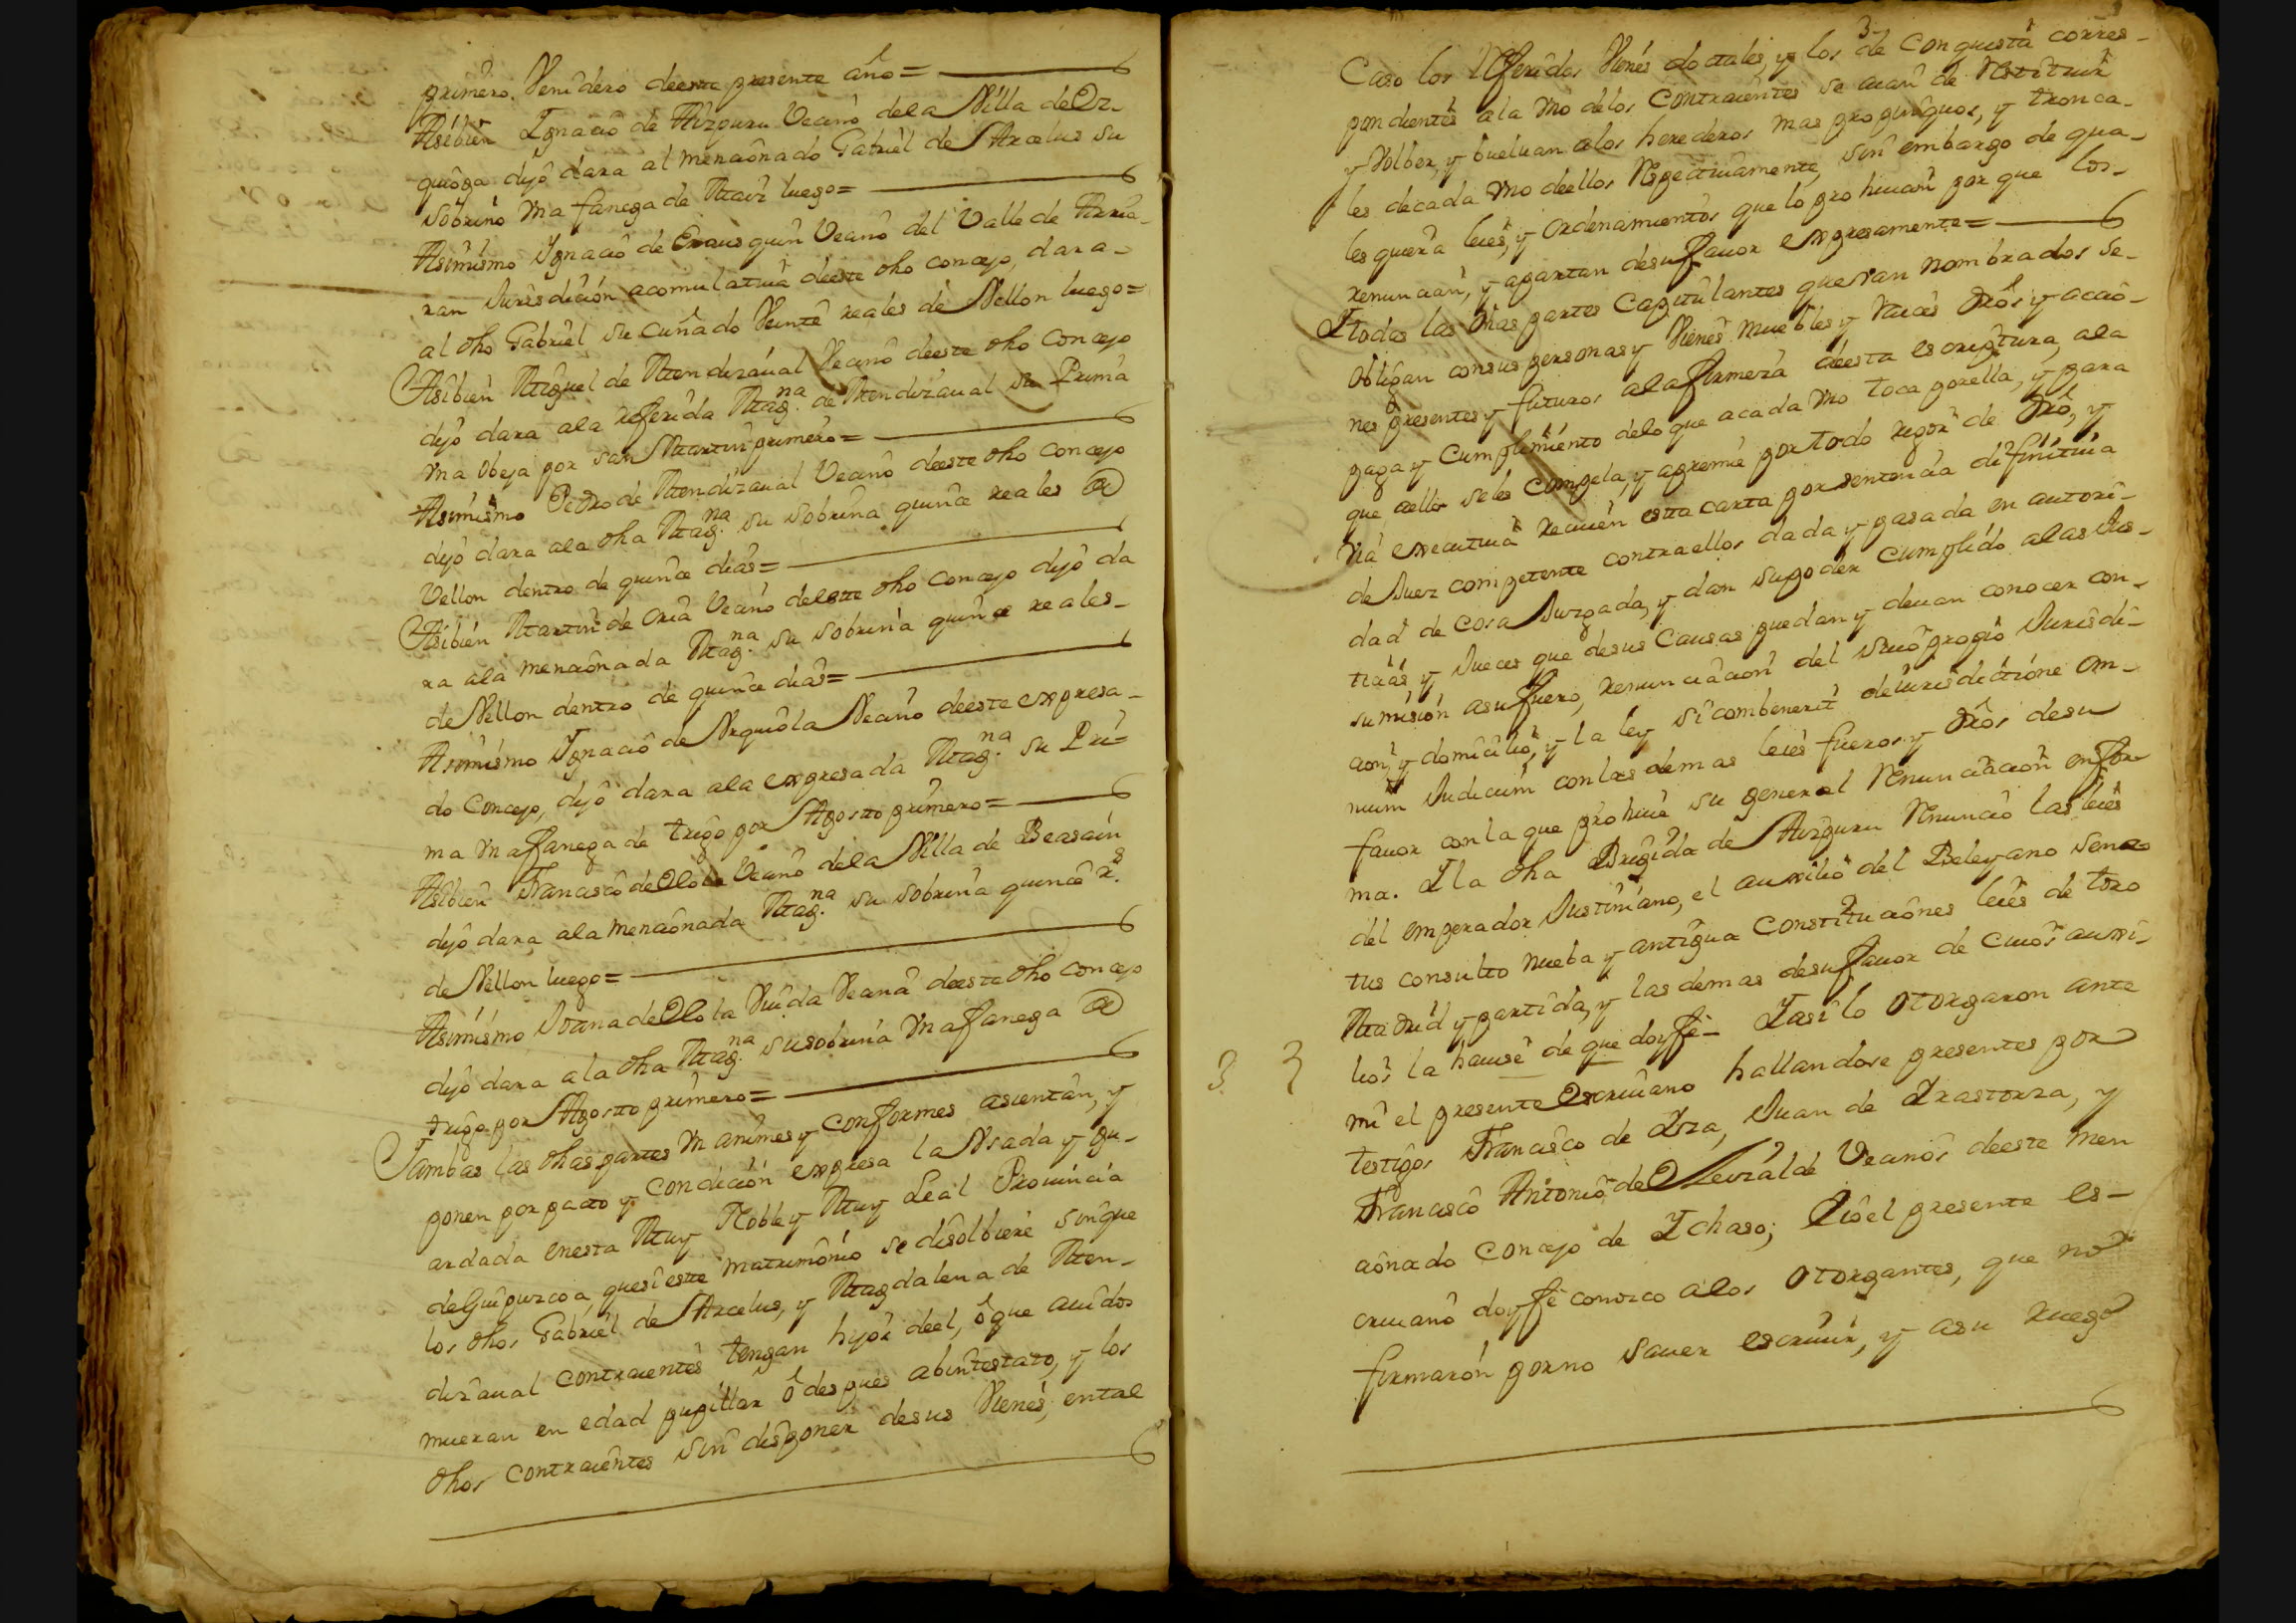 primero. Venidero deeste presente año=
Asibien Ignacio de Aizpuru Vecino dela Villa deOr-
quiôga dijo dara al mencionado Gabriel de Arcelus su
sobrino Vna fanega de Maiz luego=
Asimismo Ignacio de Erausquin Vecino del Valle de Arria-
ran Jurisdicion acomulatiua deeste dho concejo, dara-
al dho Gabriel su cuñado Veinte reales de Vellon luego=
Asibien Miguel de Mendizaual Vecino deeste dho concejo
dijo dara ala referida Mag.na de Mendizaual su Prima
Vna Obeja por san Martin primero=
Asimismo Pedro de Mendizaual Vecino deeste dho concejo
dijo dara ala dha Mag.na su sobrina quince reales de
Vellon dentro de quince dias=
Asibien Martin de Oria Vecino deeste dho concejo dijo da
ra ala mencionada Mag.na su sobrina quince reales-
de Vellon dentro de quince dias=
Asimismo Ignacio de Vrquiola Vecino deeste expresa-
do Concejo, dijo dara ala expresada Mag.na su Pri-
ma Vna fanega de trigo por Agosto primero=
Asibien Francisco deOlola Vecino dela Villa de Beasain
dijo dara ala mencionada Mag.na su sobrina quince r.s
de Vellon luego=
Asimismo Joana deOlola Viuda Vecina deeste dho concejo
dijo dara ala dha Mag.na su sobrina Vna fanega de
trigo por Agosto primero=
Iambas las dhas partes Vnanimes y conformes asientan, y
ponen por pacto y condicion expresa la Vsada y gu-
ardada enesta Muy Noble y Muy Leal Prouincia
deGuipuzcoa, quesi este matrimonio se disolbiere sinque
los dhos Gabriel de Arcelus, y Magdalena de Men-
dizaual contraientes tengan hijos deel, ô que auidos
mueran en edad pupillar ô despues abintestato, y los
dhos contraientes sin disponer desus Vienes, ental
3
Caso los referidos Vienes dotales, y los de conquista corres-
pondientes ala Vno delos contraientes se aian de restituir
y Volber, y bueluan alos herederos mas propinquos, y tronca-
les decada Vno deellos respectiuamente, sin embargo de qua-
lesquiera leies, y ordenamientos que lo prohiuan por que los-
renuncian, y apartan desufauor expresamente=
Itodas las dhas partes Capitulantes que Van nombrados se-
obligan consus personas y Vienes muebles y raices dros y accio-
nes presentes y futuros alafirmeza deesta escriptura, ala
paga y Cumplimiento delo que acada Vno toca porella, y para
que aello seles compela, y apremie por todo rigor de dro, y
Via executiua reciuen esta carta por sentencia difinitiua
de Juez competente contraellos dada y pasada en autori-
dad de cosa Juzgada, y dan supoder cumplido alas Jus-
ticias, y Jueces que desus Causas puedan y deuan conocer con-
sumision asufuero, renunciacion del suio propio Jurisdi-
cion, y domicilio, y la ley si combenerit de iurisdictione om-
nium Judicum con las demas leies fueros y dros desu
fauor con la que prohiue su general renunciacion enfor-
ma. Ila dha Brigida de Aizpuru renuncio las leies
del emperador Justiniano, el auxilio del Beleyano Sena-
tus consulto nueba y antigua Constituciones leies de toro
Madrid y partida, y las demas desufauor de cuios auxi-
lios la hauise de que doyfe- Iasi lo otorgaron ante
mi el presente Escriuano hallandose presentes por
testigos Francisco de Isa, Juan de Irastorza, y
Francisco Antonio de Vecinos deeste men
cionado concejo de Ichaso; Iioel presente es-
criuano doyfe conozco alos otorgantes, que no
firmaron porno sauer escriuir, y asu ruego